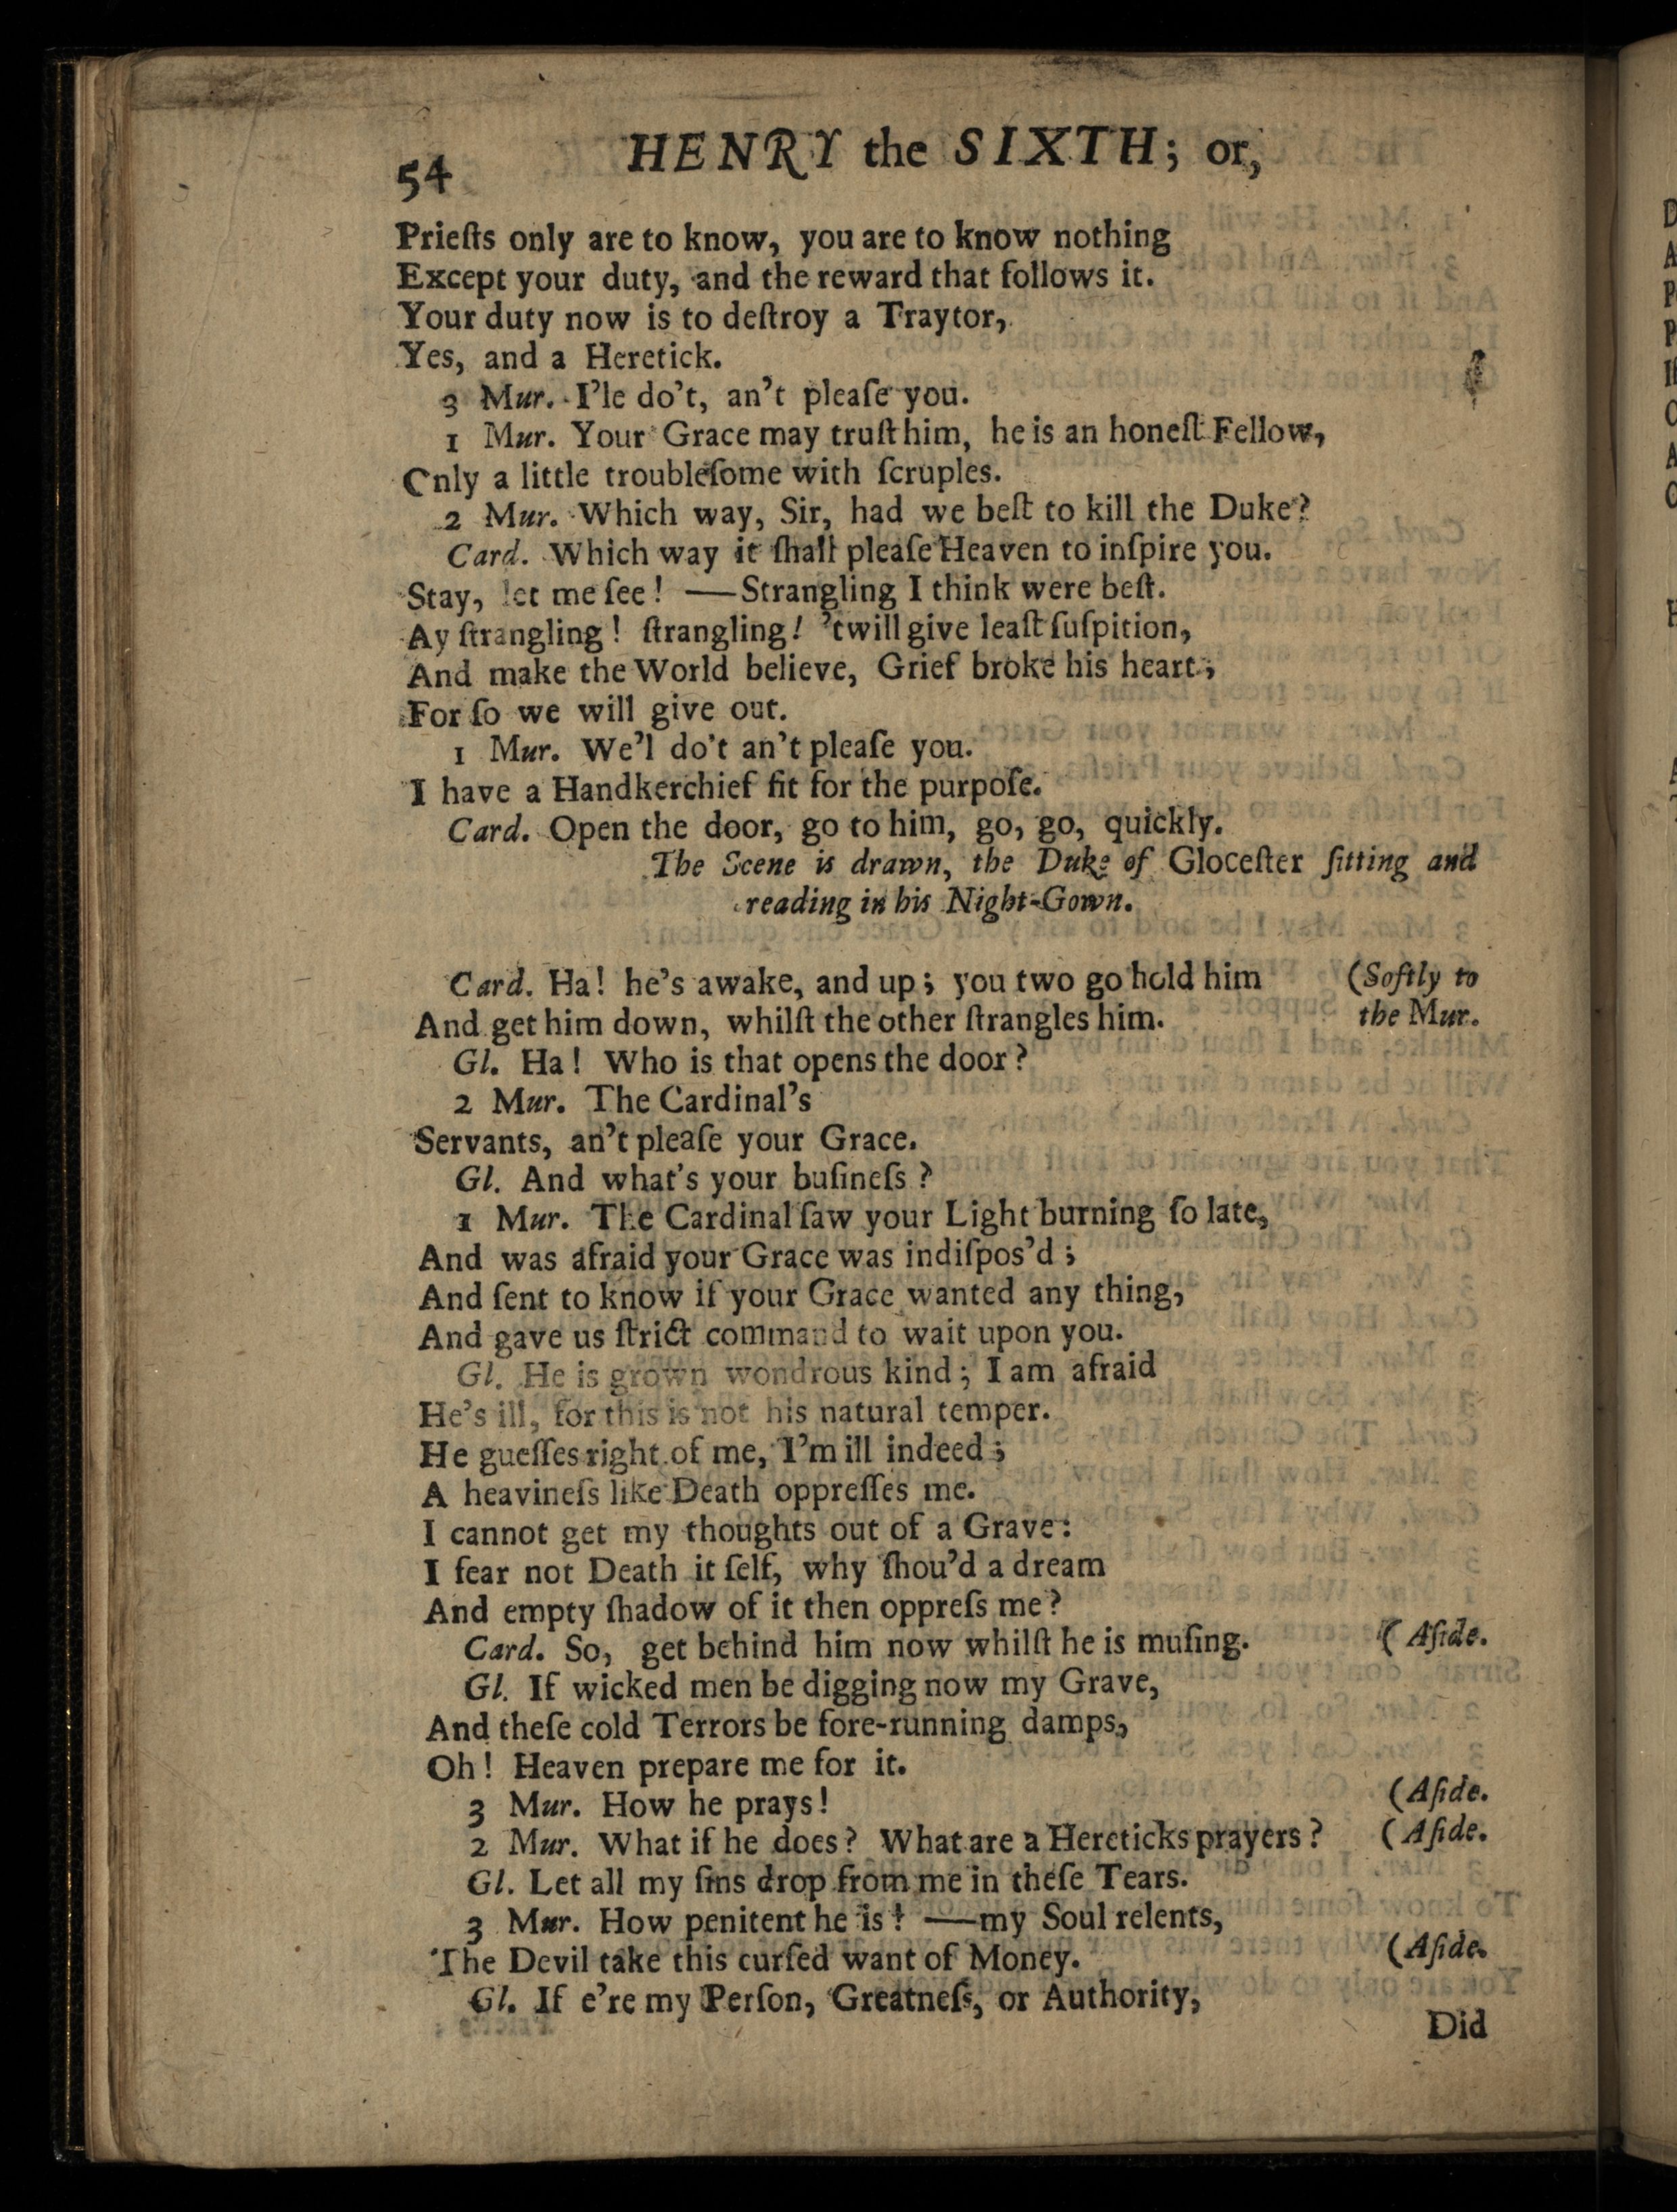 54
HENRY the SIXTH; or,
Prieſts only are to know, you are to know nothing
Except your duty, and the reward that follows it.
Your duty now is to deſtroy a Traytor,
Yes, and a Heretick.
3 Mur. I'le do't, an't pleaſe you.
1 Mur. Your Grace may truſt him, he is an honeſt Fellow,
Only a little troubleſome with ſcruples.
2 Mur. Which way, Sir, had we beſt to kill the Duke?
Card. Which way it ſhall pleaſe Heaven to inſpire you.
Stay, let me ſee! —Strangling I think were beſt.
Ay ſtrangling! ſtrangling! 'twill give leaſt ſuſpition,
And make the World believe, Grief broke his heart;
For ſo we will give out.
1 Mur. We'l do't an't pleaſe you.
I have a Handkerchief fit for the purpoſe.
Card. Open the door, go to him, go, go, quickly.
The Scene is drawn, the Duke of Gloceſter ſitting and
reading in his Night-Gown.
Card. Ha! he's awake, and up; you two go hold him (Softly to
And get him down, whilſt the other ſtrangles him. the Mur.
Gl. Ha! Who is that opens the door?
2 Mur. The Cardinal's
Servants, an't pleaſe your Grace.
Gl. And what's your buſineſs?
1 Mur. The Cardinal ſaw your Light burning ſo late,
And was afraid your Grace was indiſpos'd;
And ſent to know if your Grace wanted any thing,
And gave us ſtrict command to wait upon you.
Gl. He is grown wondrous kind; I am afraid
He's ill, for this is not his natural temper.
He gueſſes right of me, I'm ill indeed;
A heavineſs like Death oppreſſes me.
I cannot get my thoughts out of a Grave:
I fear not Death it ſelf, why ſhou'd a dream
And empty ſhadow of it then oppreſs me?
Card. So, get behind him now whilſt he is muſing. (Aſide.
Gl. If wicked men be digging now my Grave,
And theſe cold Terrors be fore-running damps,
Oh! Heaven prepare me for it.
3 Mur. How he prays! (Aſide.
2 Mur. What if he does? What are a Hereticks prayers? (Aſide.
Gl. Let all my ſins drop from me in theſe Tears.
3 Mur. How penitent he is! —my Soul relents,
The Devil take this curſed want of Money. (Aſide.
Gl. If e're my Perſon, Greatneſs, or Authority,
Did